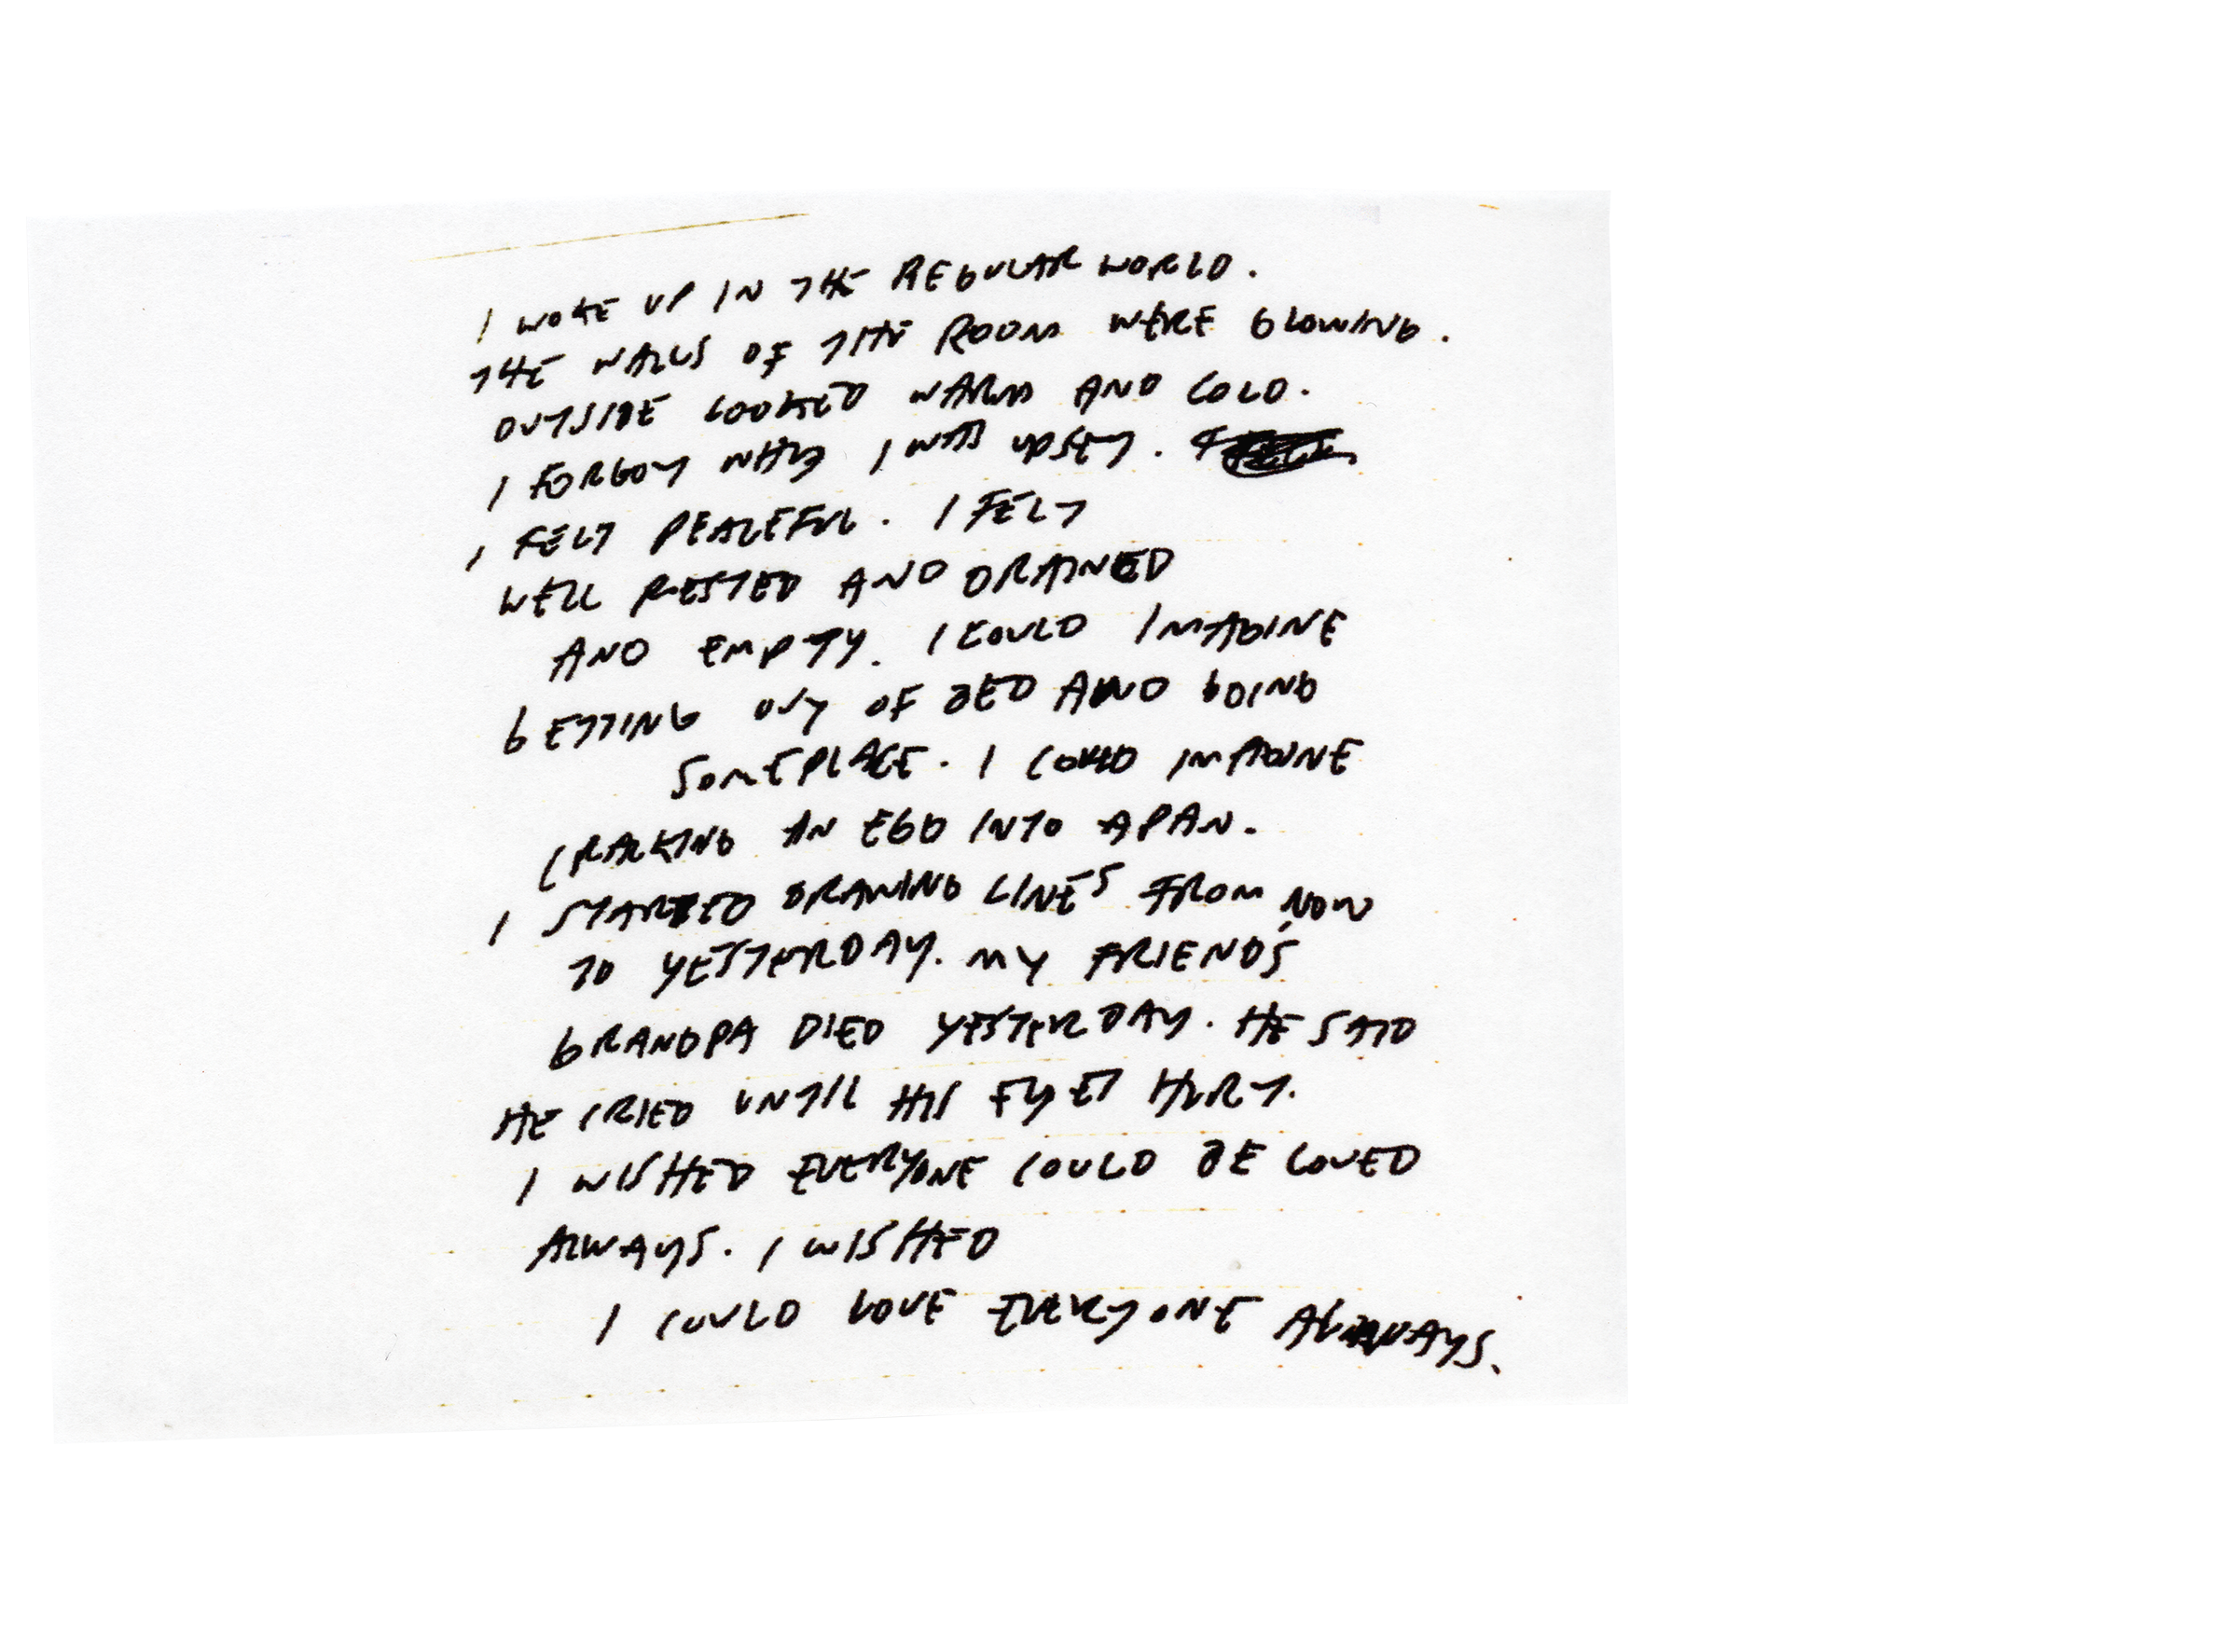 I WOKE UP IN THE REGULAR WORLD.
THE WALLS OF THE ROOM WERE GLOWING.
OUTSIDE LOOKED WARM AND COLD.
I FORGOT WHY I WAS UPSET.
I FELT PEACEFUL. I FELT
WELL RESTED AND DRAINED
AND EMPTY. I COULD IMAGINE
GETTING OUT OF BED AND GOING
SOMEPLACE. I COULD IMAGINE
CRACKING AN EGG INTO A PAN.
I STARTED DRAWING LINES FROM NOW
TO YESTERDAY. MY FRIEND'S
GRANDPA DIED YESTERDAY. HE SAID
HE CRIED UNTIL HIS EYES HURT.
I WISHED EVERYONE COULD BE LOVED
ALWAYS. I WISHED
I COULD LOVE EVERYONE ALWAYS.